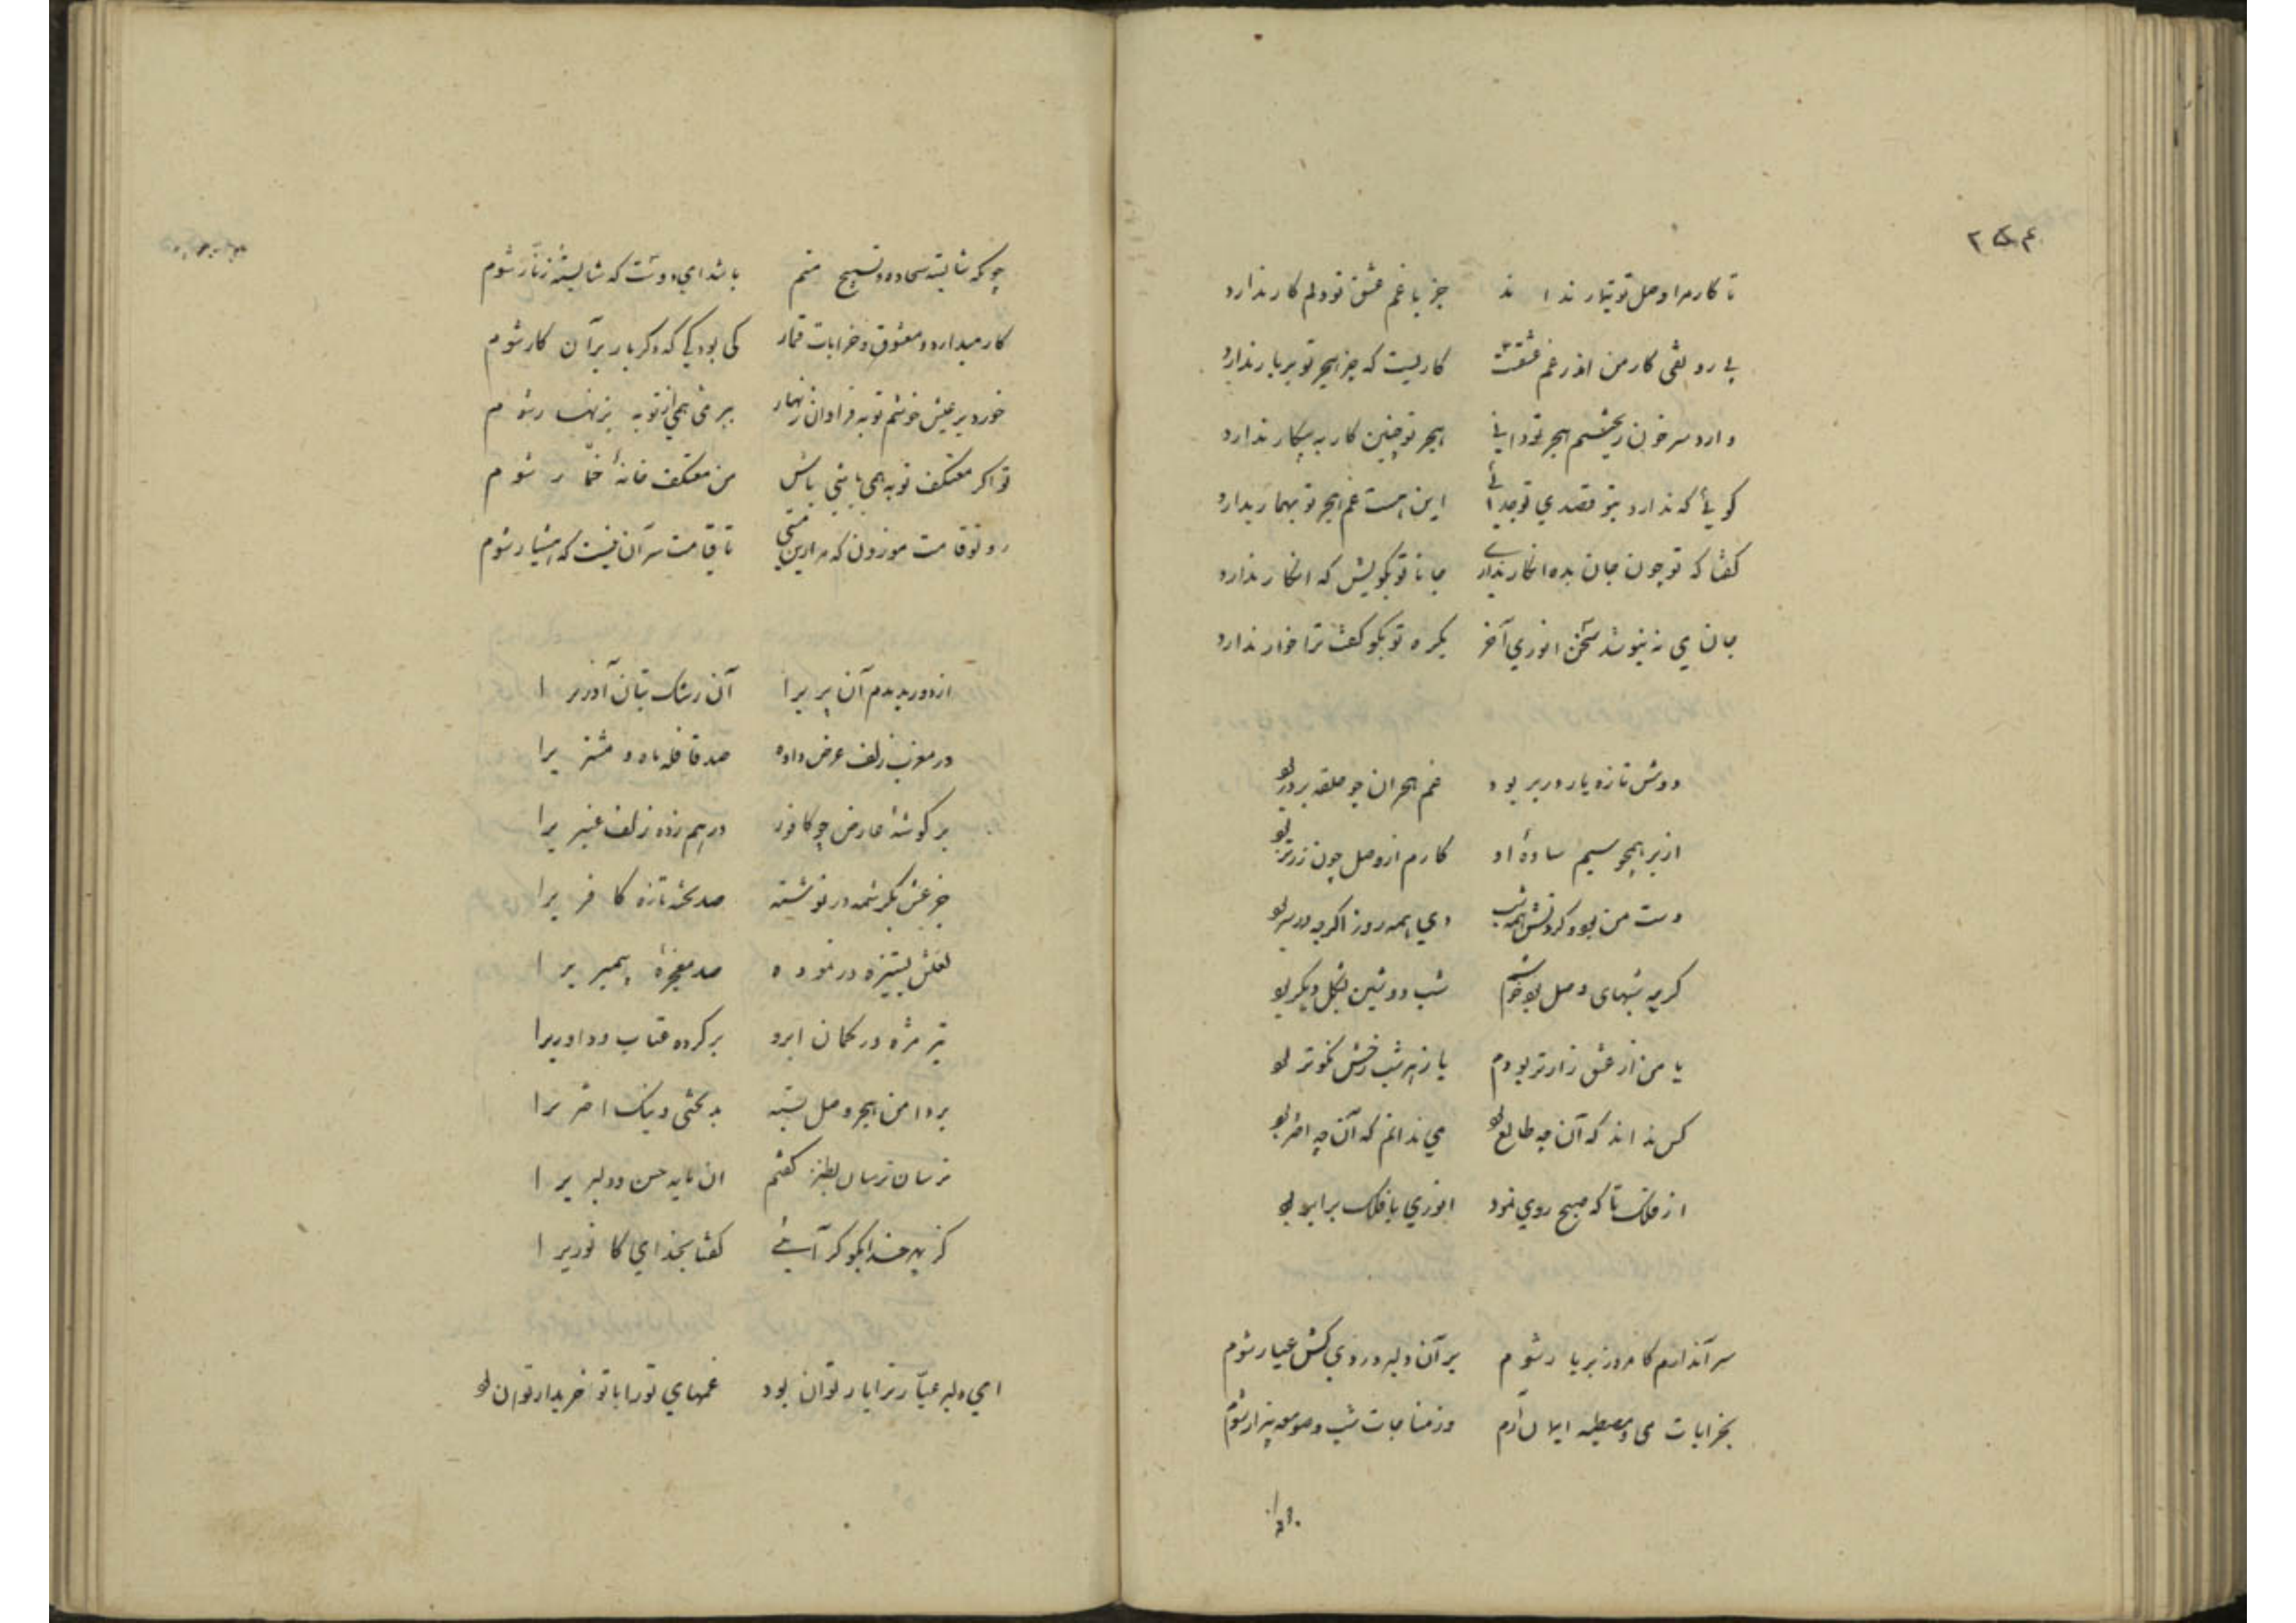 تا کار مرا وصل تو تیمار ندا ند جز با غم عشق تو دلم کار ندارد
بی رونقی کار من اندر غم عشقت کاریست که جز هجر تو بر بار ندارد
دارد سر خون ریختنم هجر تو دانی هجر تو چنین کار به بیکار ندارد
گویی که ندارد بتو قصدی تو چه این هست غم هجر تو بهما ریدارد
گفتا که تو چون جان بده انکار نداری جانا تو بگویش که انکار ندارد
جانا ی نه بنوشد سخن انوری آخر یکره تو بگو گفت ترا خوار ندارد
دوش تا روز یار در بر بود غم هجران چو حلقه بر در بو
از بر همچو سیم ساده او کارم از وصل چون زر تر بو
دست من بود و گردنش همه شب دی همه روز اگرچه در سر بو
گرچه شبهای وصل بود خوشم شب دوشین بشکل دیگر بو
یا من از عشق زارتر بودم یا ز هر شب رخش نکوتر بو
کس نداند که آن چه طالع بو می ندانم که آن چه اختر بو
از فلک تا که صبح روی نمود انوری با فلک برابر بو
سر آندارم کامروز بر یار شوم بر آن دلبر دردی کش عیار شوم
بخرابات می و مصطبه ایمان آرم وز مناجات شب و صومعه بیزار شوم
چونکه شایسته سجاده و تسبیح منم باشد ای دوست که شایسته زنار شوم
کار میدارد و معشوق و خرابات قمار کی بود کی که دگر بار بر آن کار شوم
خورد بر عیش خوشم توبه فراوان زنهار ببر می همی از توبه بزنهار شوم
تو اگر معتکف توبه همی باشی باش من معتکف خانه خمار شوم
رو تو قامت موزون که مرا زین مستی تا قامت سر آن نیست که هشیار شوم
از دور بدیدم آن پریرا آن رشک بتان آزریرا
در مغرب زلف عرض داده صد قافله ماه و مشتریرا
بر گوشه عارض چو کافور درهم زده زلف عنبریرا
جزعش بکرشمه در نوشته صد تخته تازه کافریرا
لعلش بستیزه در نموده صد معجزه پیمبریرا
تیر مژه در کمان ابرو بر کرده عتاب و داوریرا
بر دامن هجر و وصل بسته بدبختی و نیک اختریرا
ترسان ترسان بطنز گفتم ان مایه حسن و دلبریرا
کز بهر خدا بگو کرایی گفتا بخدای کانوریرا
ای دلبر عیار ترا یار توان بود غمهای تو را با تو خریدار توان بو